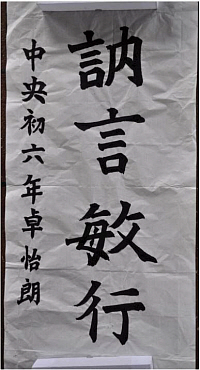 訥言敏行
中央初六年卓怡朗